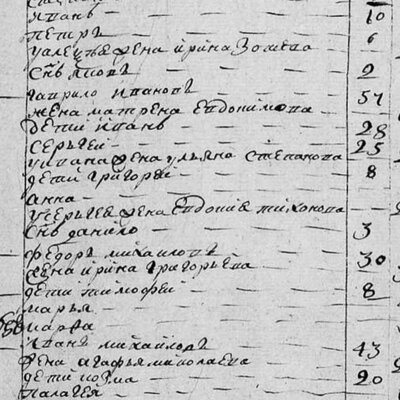 иванъ 10
петръ 6
жена ирина Зотева
Снъ яковъ 9
гаврило ивановъ 57
жена матрена Евдокимова
дети иванъ 28
Сергеи 25
у ивана жена ульяна степанова
дети григореи 8
анна
у сергея жена Евдокия тихонова
Снъ данило 3
Федоръ михаиловъ 30
жена ирина григорьева
дети тимофеи 8
марья
марва
иванъ михаиловъ 43
жена агафья миколаева
дети козма 20
палагея